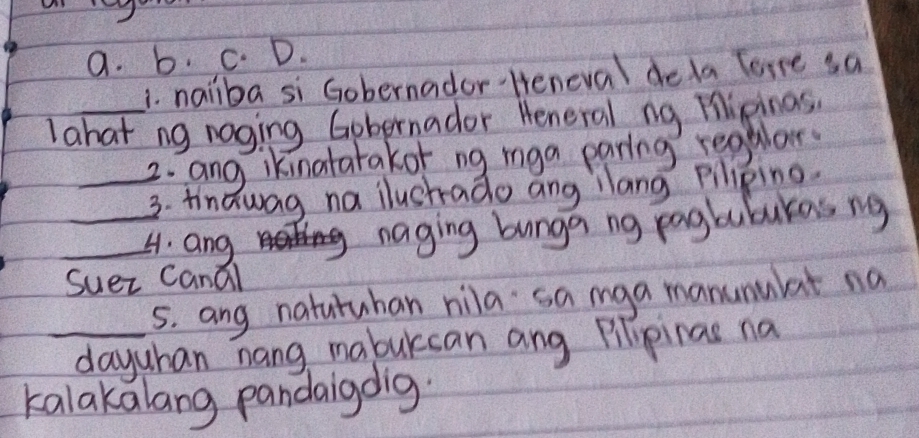 a. b. c. D.
____1. naiiba si Gobernador-Heneral de la Torre sa
lahat ng naging Gobernador Heneral ng Pilipinas.
____2. ang ikinatatakot ng mga paring regular.
____3. tinawag na ilustrado ang ilang Pilipino.
____4. ang naging bunga ng pagbubukas ng
Suez Canal
____5. ang natutuhan nila sa mga manunulat na
dayuhan nang mabuksan ang Pilipinas na
kalakalang pandaigdig.